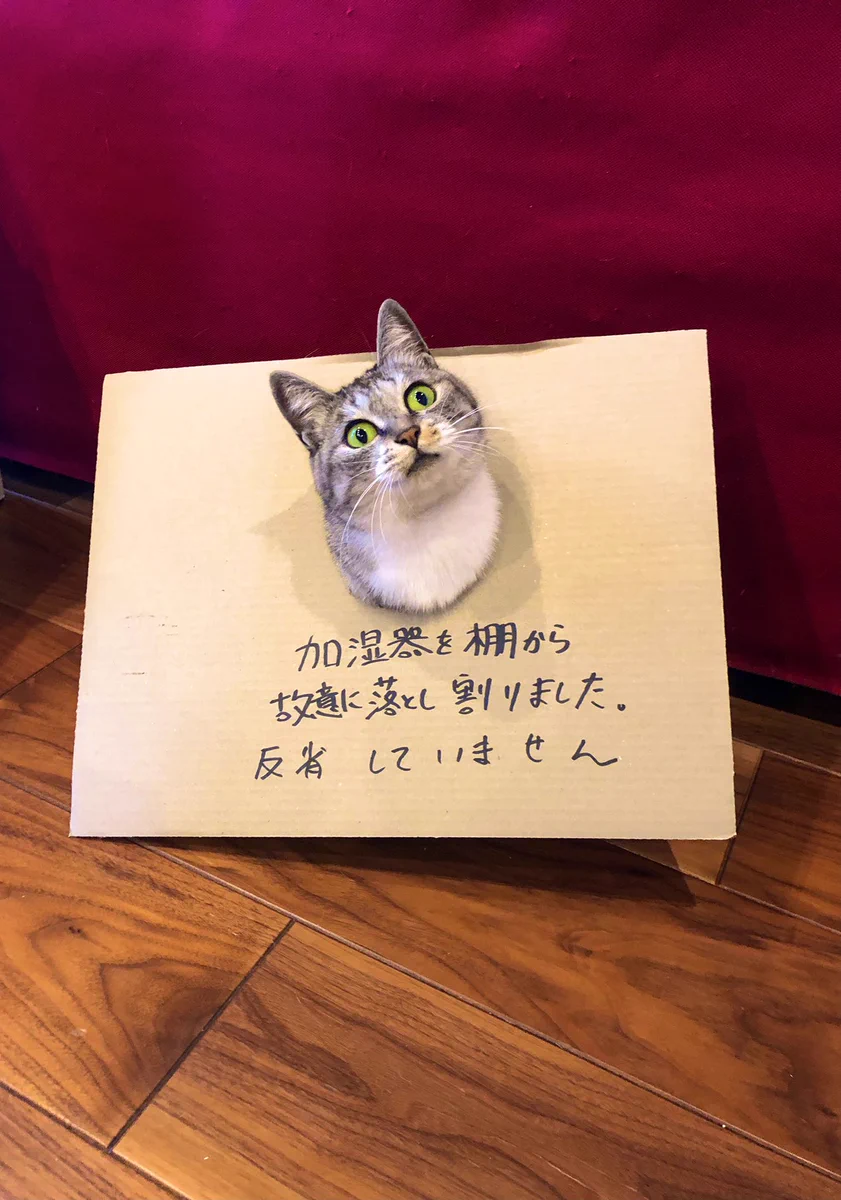 加湿器を棚から
故意に落とし割りました。
反省していません